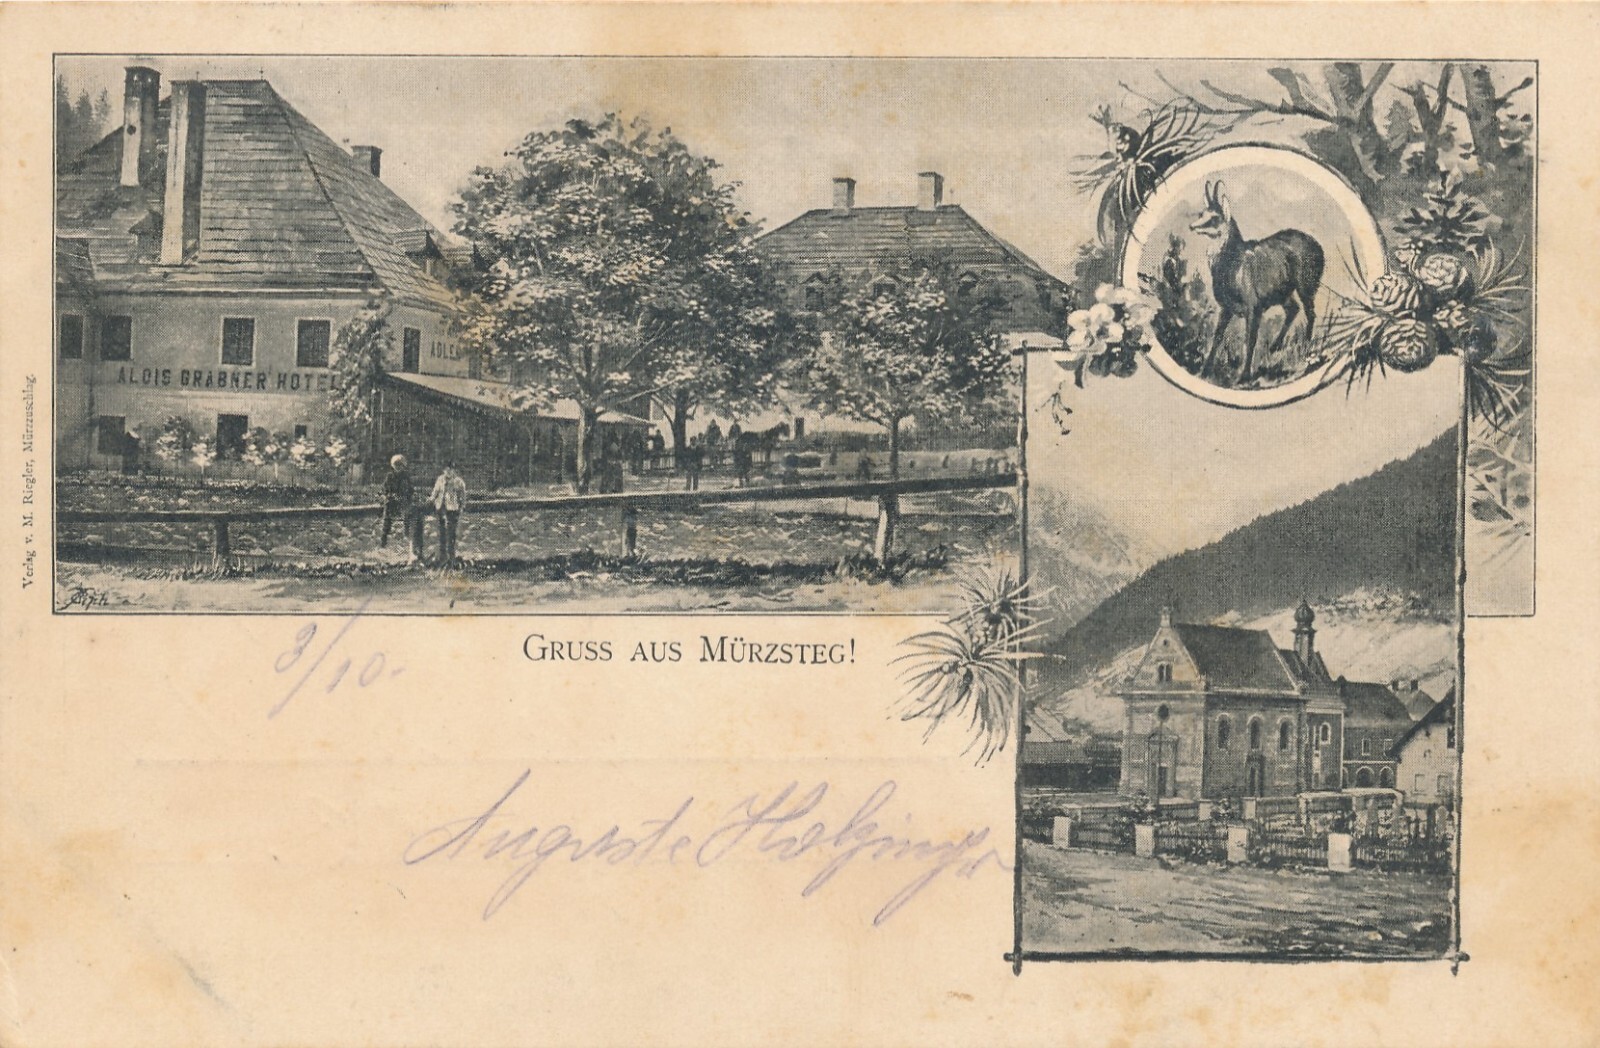 ALOIS GRABNER HOTEL
ADLER
GRUSS AUS MÜRZSTEG!
3/10.
Auguste Holzinger
Verlag v. M. Riegler, Mürzzuschlag.